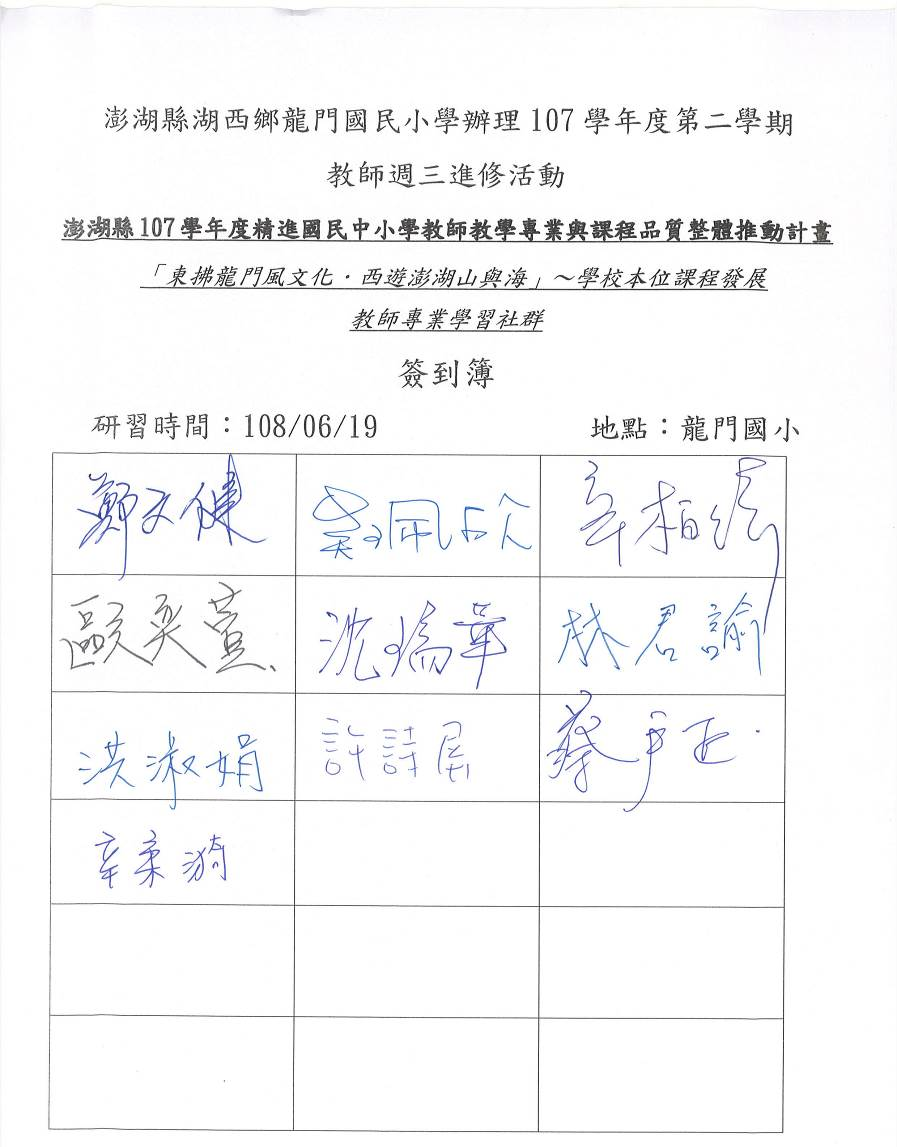 澎湖縣湖西鄉龍門國民小學辦理107學年度第二學期
教師週三進修活動
澎湖縣107學年度精進國民中小學教師教學專業與課程品質整體推動計畫
「東拂龍門風文化．西遊澎湖山與海」～學校本位課程發展
教師專業學習社群
簽到簿
研習時間：108/06/19 地點：龍門國小
鄭文健 辛柏緯
歐奕萱 沈瑀華 林君諭
洪淑娟 許詩屏 蔡
辛柔漪